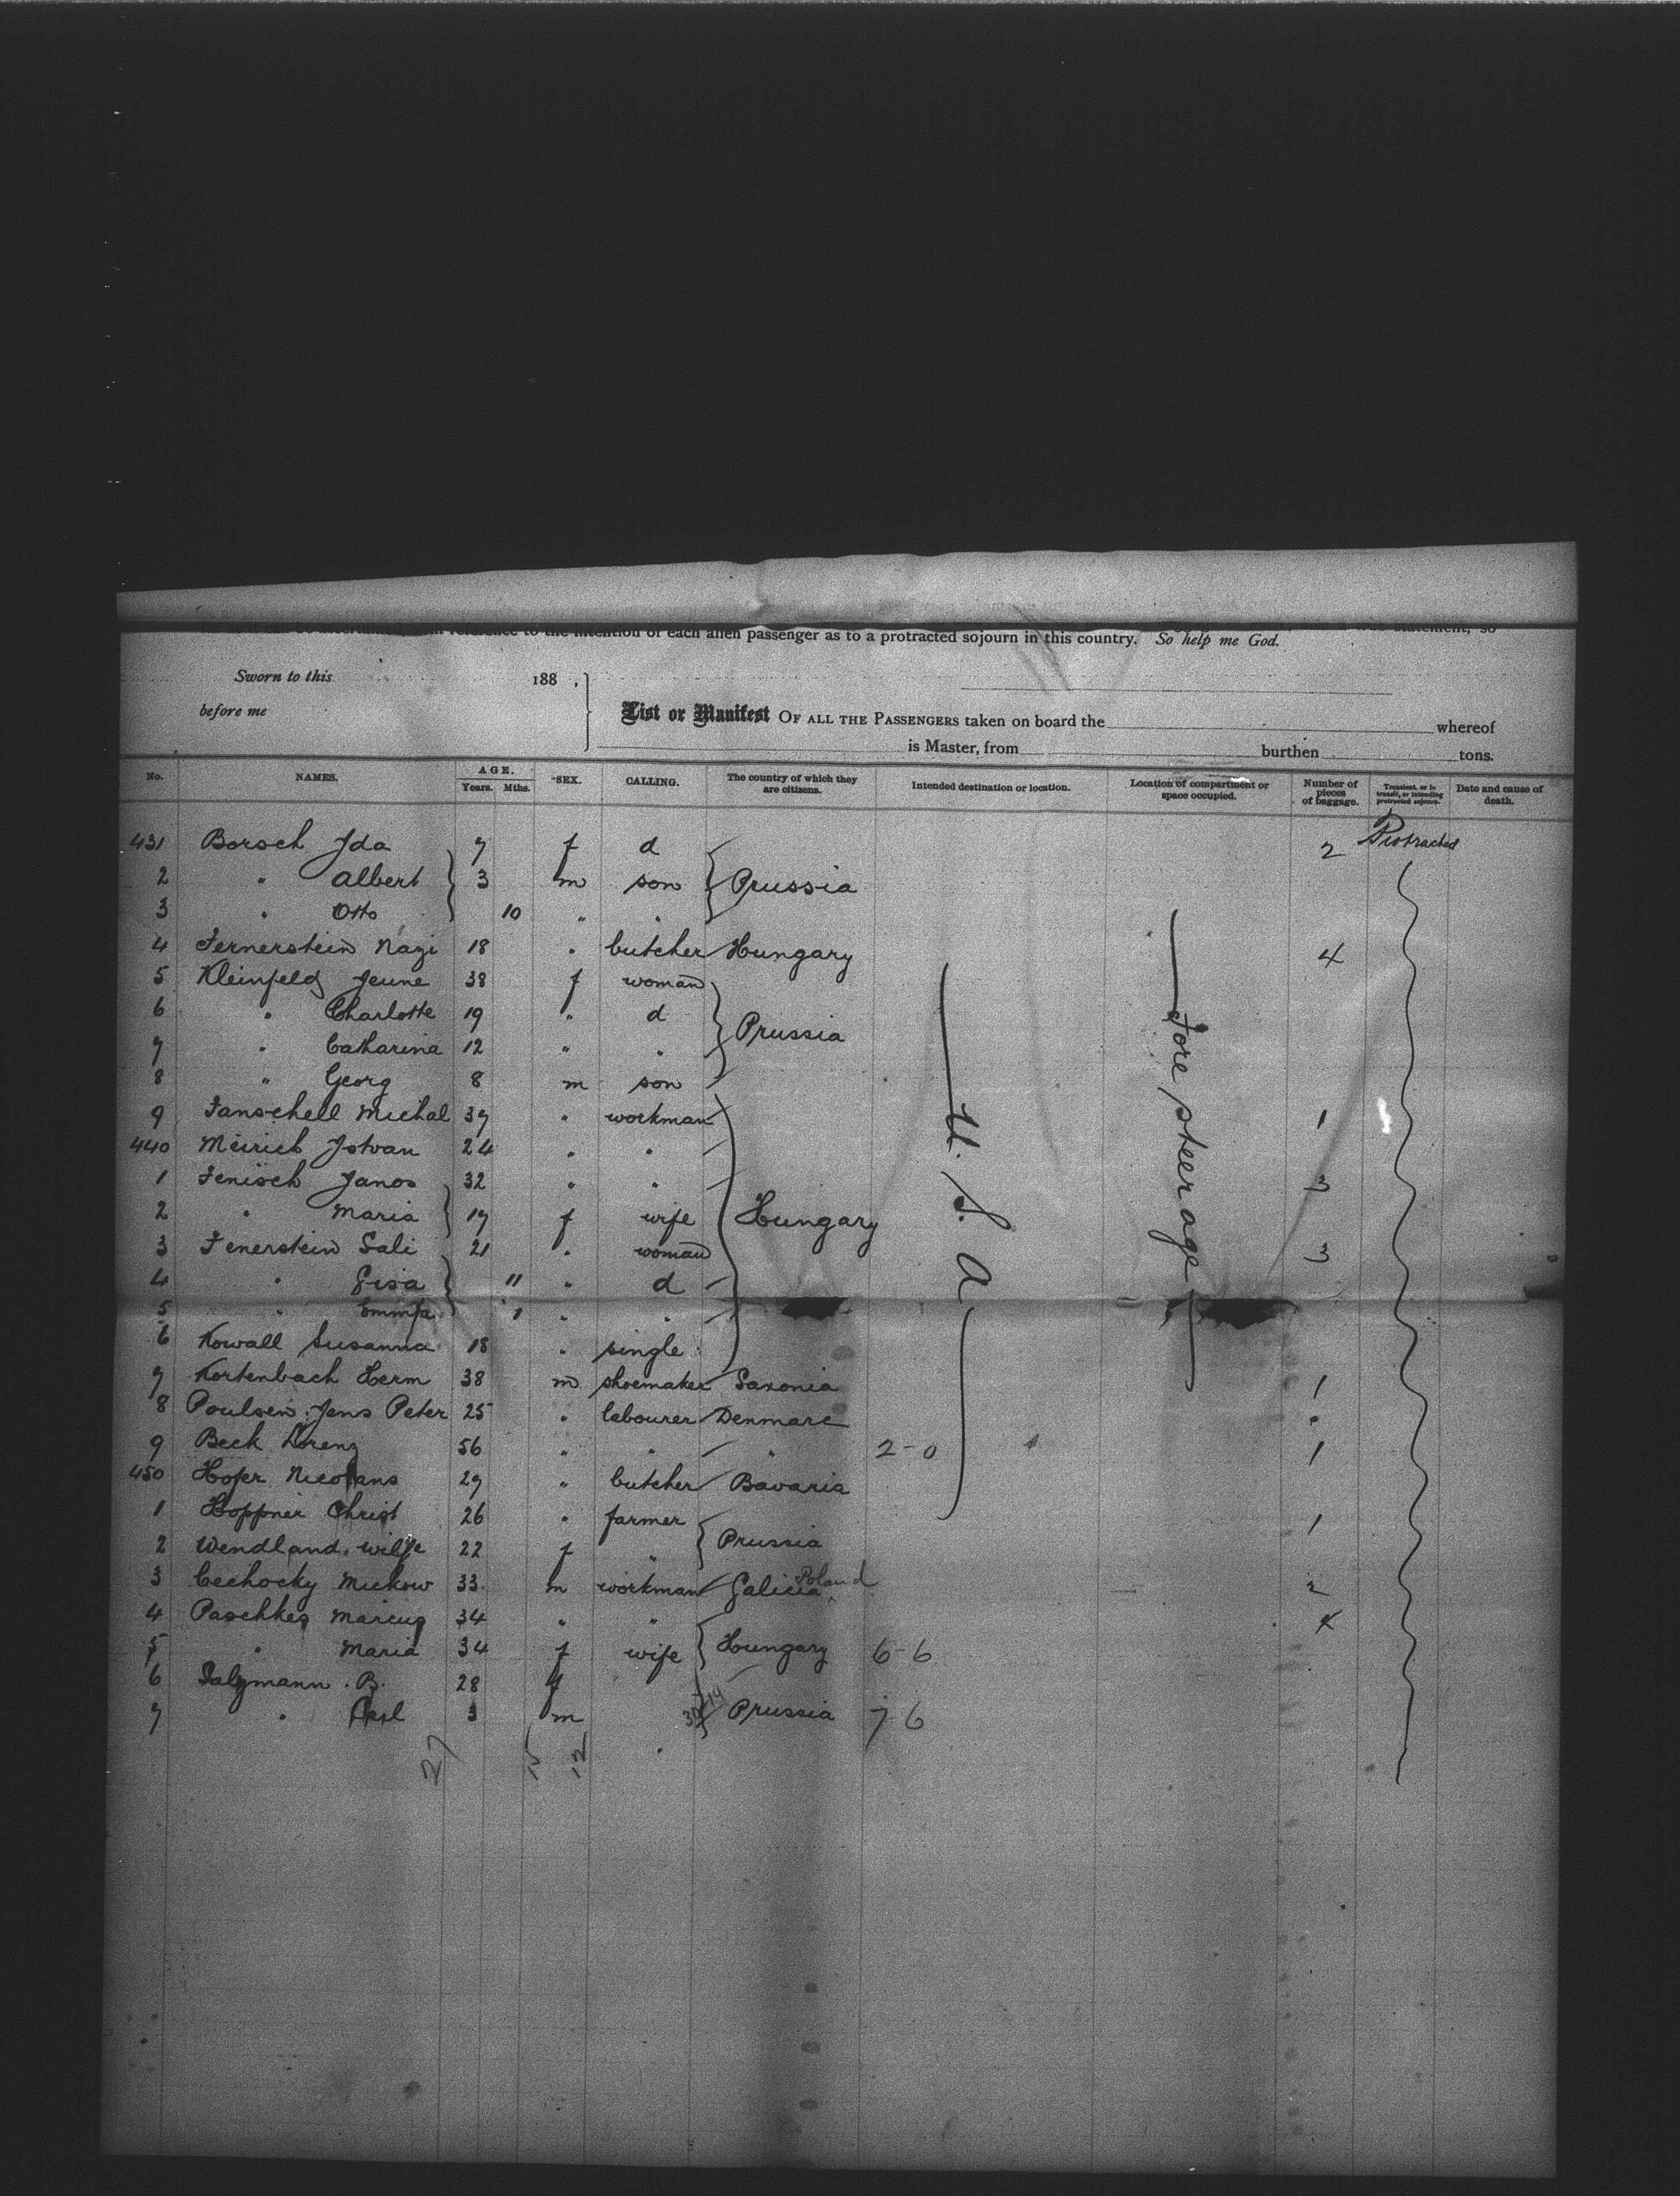 reference to the intention of each alien passenger as to a protracted sojourn in this country. So help me God. statement, so
Sworn to this 188 ,
before me
List or Manifest OF ALL THE PASSENGERS taken on board the whereof
is Master, from burthen tons.
No. NAMES. AGE. Years. Mths. SEX. CALLING. The country of which they are citizens. Intended destination or location. Location of compartment or space occupied. Number of pieces of baggage. Transient, or in transit, or intending protracted sojourn. Date and cause of death.
431 Borsch Ida 7 f d 2 Protracted
2 " Albert 3 m son Prussia
3 " Otto 10 " "
4 Fernerstein Nazi 18 " butcher Hungary 4
5 Kleinfeld Jeune 38 f woman
6 " Charlotte 19 " d Prussia
7 " Catharina 12 " "
8 " Georg 8 m son
9 Fanschell Michal 37 " workman 1
440 Meirich Istvan 24 " "
1 Fenisch Janos 32 " " 3
2 " Maria 19 f wife Hungary
3 Fenerstein Sali 21 " woman 3
4 " Gisa 11 " d
5 " 1 " "
6 Kowall Susanna 18 " single
7 Kortenbach Herm 38 m shoemaker Saxonia 1
8 Poulsen Jens Peter 25 " labourer Denmarc "
9 Beck Lorenz 56 " " " 2-0 1
450 Hofer Nicolans 29 " butcher Bavaria
1 Hoppner Christ 26 " farmer 1
2 Wendland 22 f " Prussia
3 Cechocky Mickow 33 m workman Galicia Poland 2
4 Paschkes Marcus 34 " " 4
5 " Maria 34 f wife Hungary 6-6
6 Salzmann B. 28 f
7 " Carl 3 m Prussia 7-6
U. S. A
Fore steerage
27 15 12